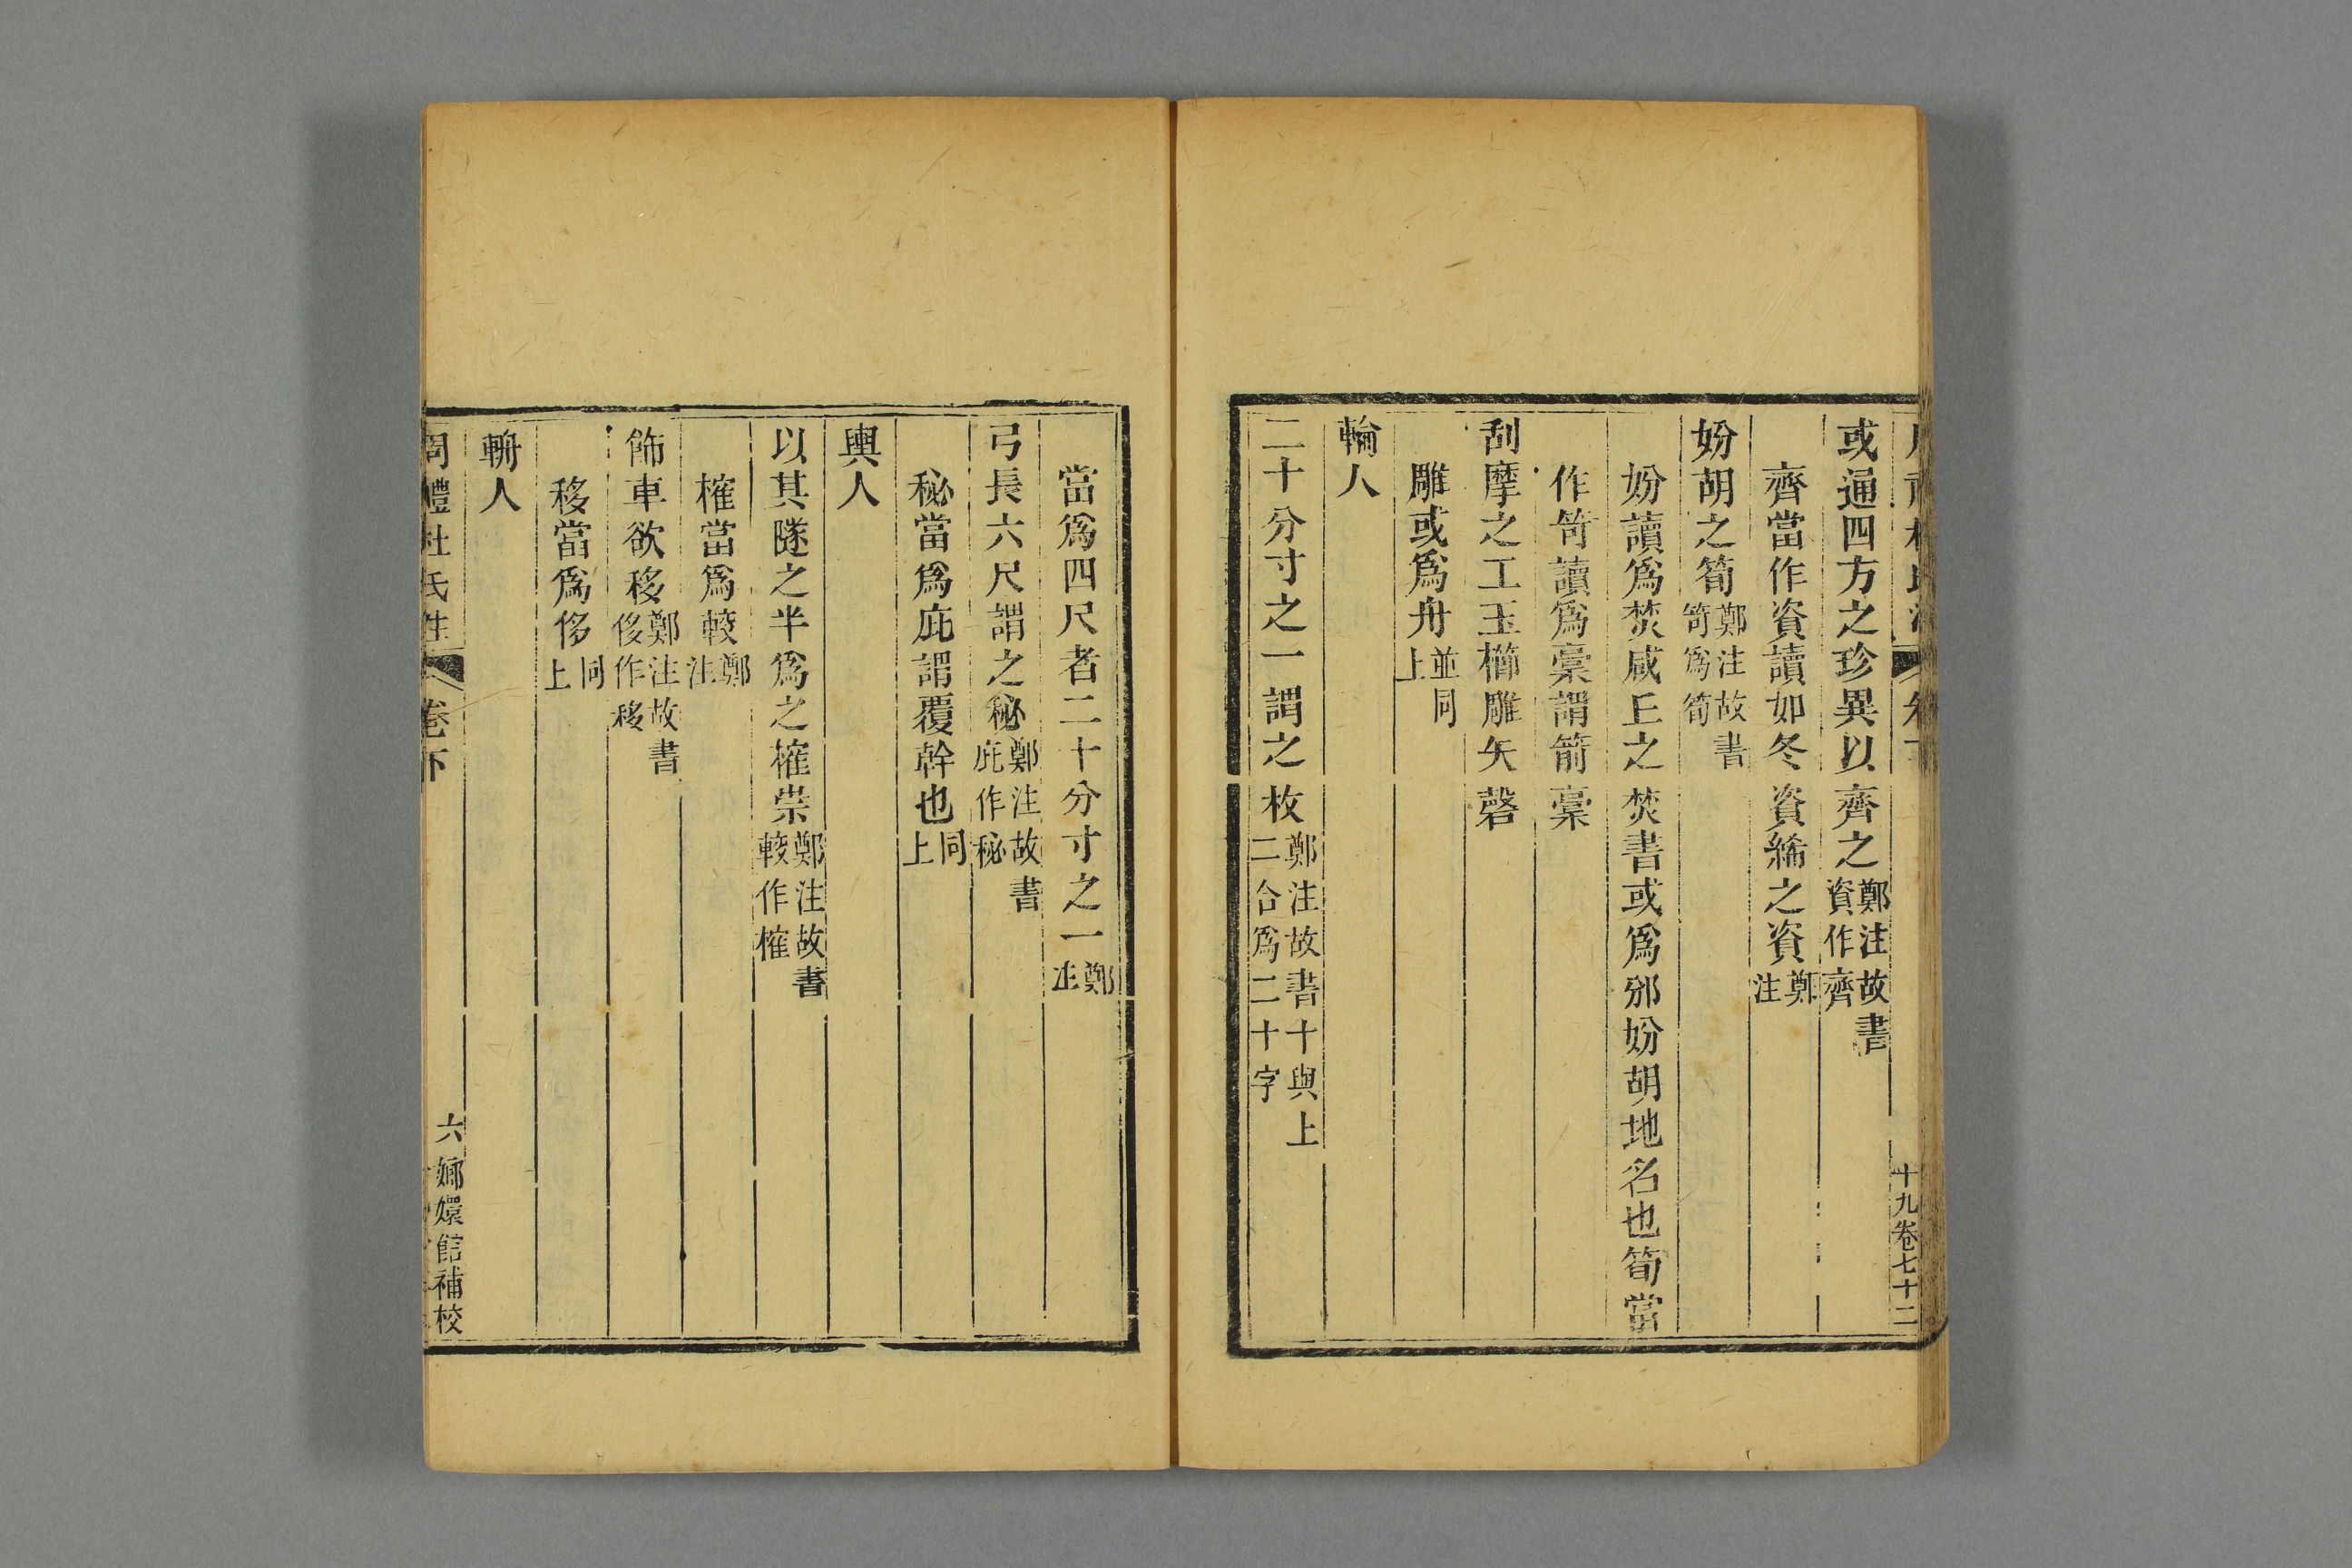 或通四方之珍異以齊之鄭注故書資作齊
齊當作資讀如冬資絺之資鄭注
妢胡之筍鄭注故書笴爲筍
妢讀爲焚咸丘之焚書或爲邠妢胡地名也筍當
作笴讀爲稾謂箭稾
刮摩之工玉櫛雕矢磬
雕或爲舟並同上
輪人
二十分寸之一謂之枚鄭注故書十與上二合爲二十字
十九卷七十二
當爲四尺者二十分寸之一鄭注
弓長六尺謂之秘鄭注故書庇作秘
秘當爲庇謂覆幹也同上
輿人
以其隧之半爲之㩁崇鄭注故書較作㩁
㩁當爲較鄭注
飾車欲移鄭注故書侈作移
移當爲侈同上
輈人
周禮杜氏注 卷下 六 嫏嬛館補校